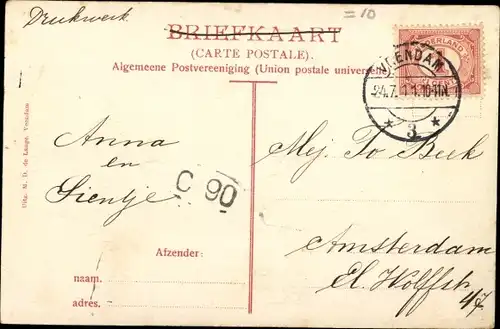 Drukwerk
= 10
BRIEFKAART
(CARTE POSTALE).
Algemeene Postvereeniging (Union postale universelle)
NEDERLAND
1
CENT
24.7.11.10-11N.
* 3 *
C 90
Anna
en
Sientje
Mej. To Beek
Amsterdam
El. Wolffstr.
47
Afzender:
naam
adres.
Uitg. M. D. de Lange, Veendam